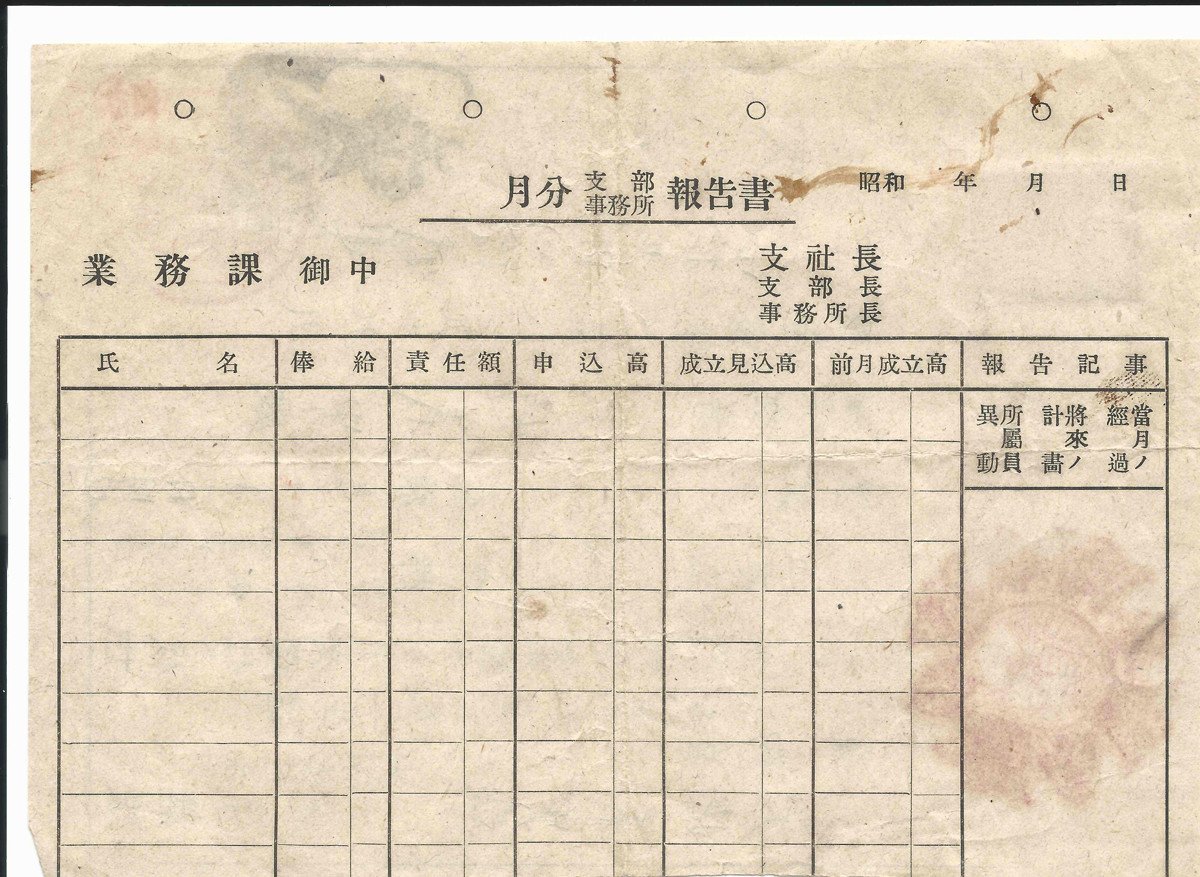 月分 支部 事務所 報告書
昭和 年 月 日
業務課御中
支社長
支部長
事務所長
氏名 俸給 責任額 申込高 成立見込高 前月成立高 報告記事
當月ノ經過
將來ノ計畫
所屬員異動